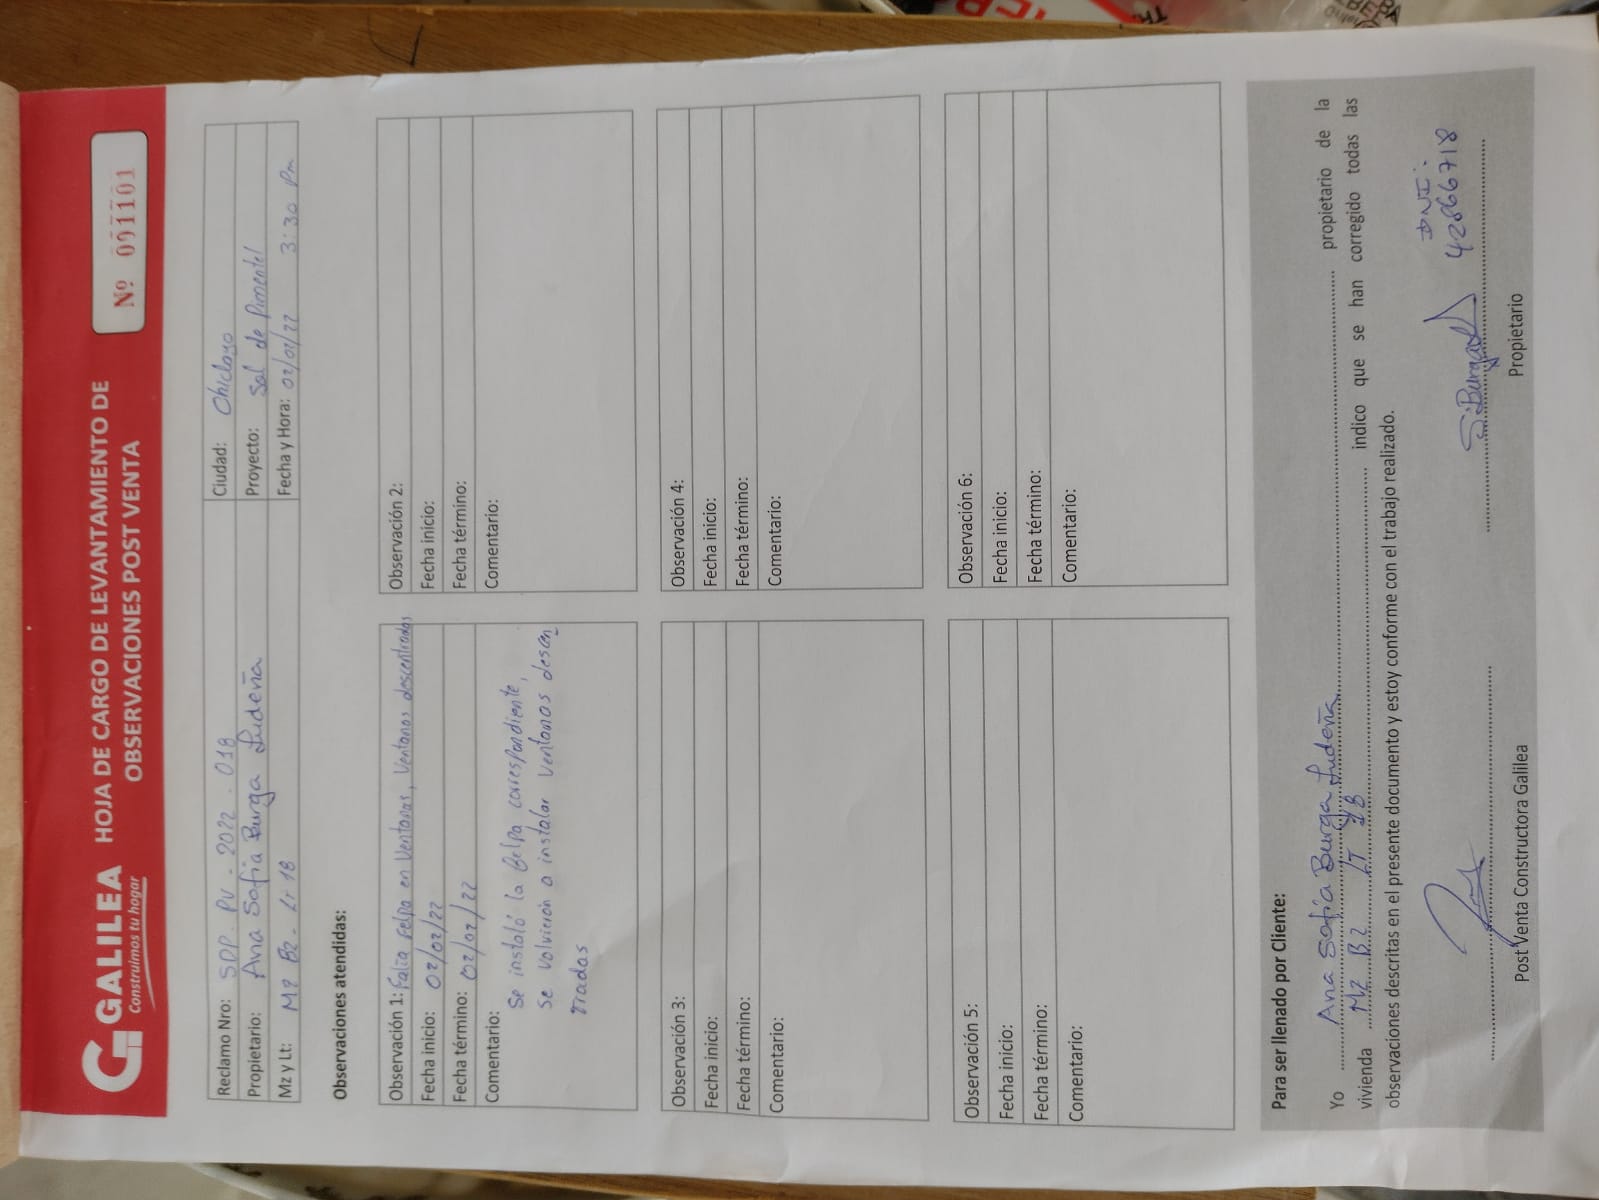 GALILEA
Construimos tu hogar
HOJA DE CARGO DE LEVANTAMIENTO DE
OBSERVACIONES POST VENTA
Nº 001101
Reclamo Nro: SDP. PV - 2022 - 018
Ciudad: Chiclayo
Propietario: Ana Sofía Burga Ludeña
Proyecto: Sol de Pimentel
Mz y Lt: Mz B2 - Lt 18
Fecha y Hora: 02/02/22 3:30 Pm
Observaciones atendidas:
Observación 1: Falta Felpa en Ventanas, Ventanas descentradas
Fecha inicio: 02/02/22
Fecha término: 02/02/22
Comentario:
Se instaló la felpa correspondiente,
se volvieron a instalar ventanas descen
tradas
Observación 2:
Fecha inicio:
Fecha término:
Comentario:
Observación 3:
Fecha inicio:
Fecha término:
Comentario:
Observación 4:
Fecha inicio:
Fecha término:
Comentario:
Observación 5:
Fecha inicio:
Fecha término:
Comentario:
Observación 6:
Fecha inicio:
Fecha término:
Comentario:
Para ser llenado por Cliente:
Yo Ana Sofía Burga Ludeña propietario de la
vivienda Mz B2 LT 18 indico que se han corregido todas las
observaciones descritas en el presente documento y estoy conforme con el trabajo realizado.
S.Burga DNI:
42866718
Post Venta Constructora Galilea
Propietario